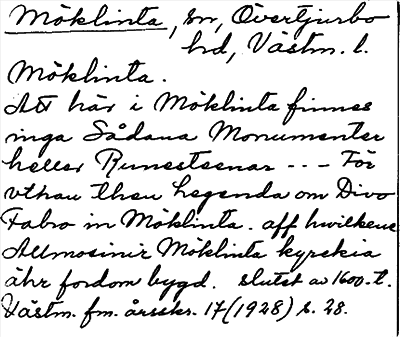 Möklinta, sn, Övertjurbo
hd, Västm. l.
Möklinta.
Att här i Möklinta finnes
inga Sådana Monumenter
heller Runesteenar --- För
vthan then legenda om Divo
Fabro in Möklinta. aff hwilkens
Allmosinir Möklinta kyrckia
ähr fordom bygd. slutet av 1600-t.
Västm. fm. årsskr. 17 (1928) s. 28.